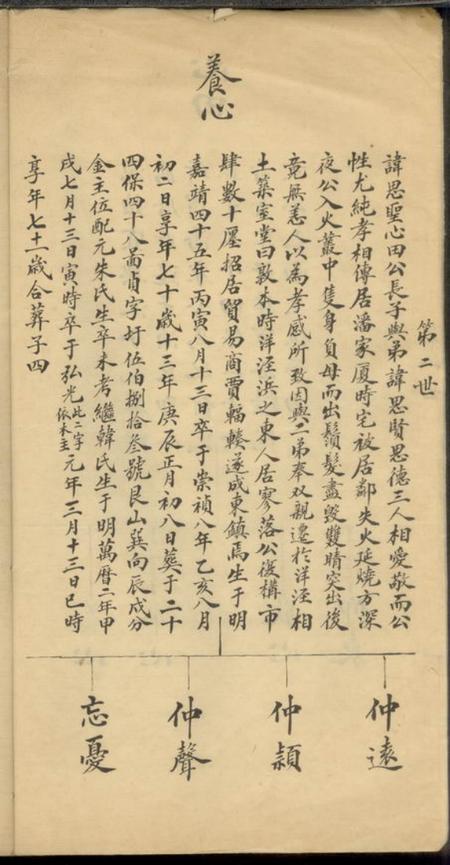 第二世
養心
諱思聖心田公長子與弟諱思賢思德三人相愛敬而公
性尤純孝相傳居潘家厦時宅被居鄰失火延燒方深
夜公入火叢中隻身負母而出鬚髮盡毁雙睛突出後
竟無恙人以為孝感所致因與二弟奉双親遷於洋涇相
土築室堂曰敦本時洋涇浜之東人居寥落公復構市
肆數十廛招居貿易商賈輻輳遂成東鎮焉生于明
嘉靖四十五年丙寅八月十三日卒于崇禎八年乙亥八月
初二日享年七十歲十三年庚辰正月初八日葬于二十
四保四十八啚貞字圩伍伯捌拾叁號艮山巽向辰戌分
金主位配元朱氏生卒未考繼韓氏生于明萬曆二年甲
戌七月十三日寅時卒于弘光此二字依木主元年三月十三日巳時
享年七十二歲合葬子四
仲遠
仲穎
仲聲
忘憂